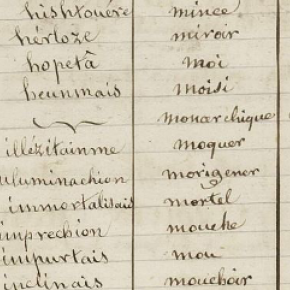 hishtouére mince
hértoze miroir
hopetâ moi
heunmais moisi
monarchique
illézitainme moquer
uluminachion morigener
immortalisais mortel
imprechion mouche
impurtais mou
inclinais mouchoir